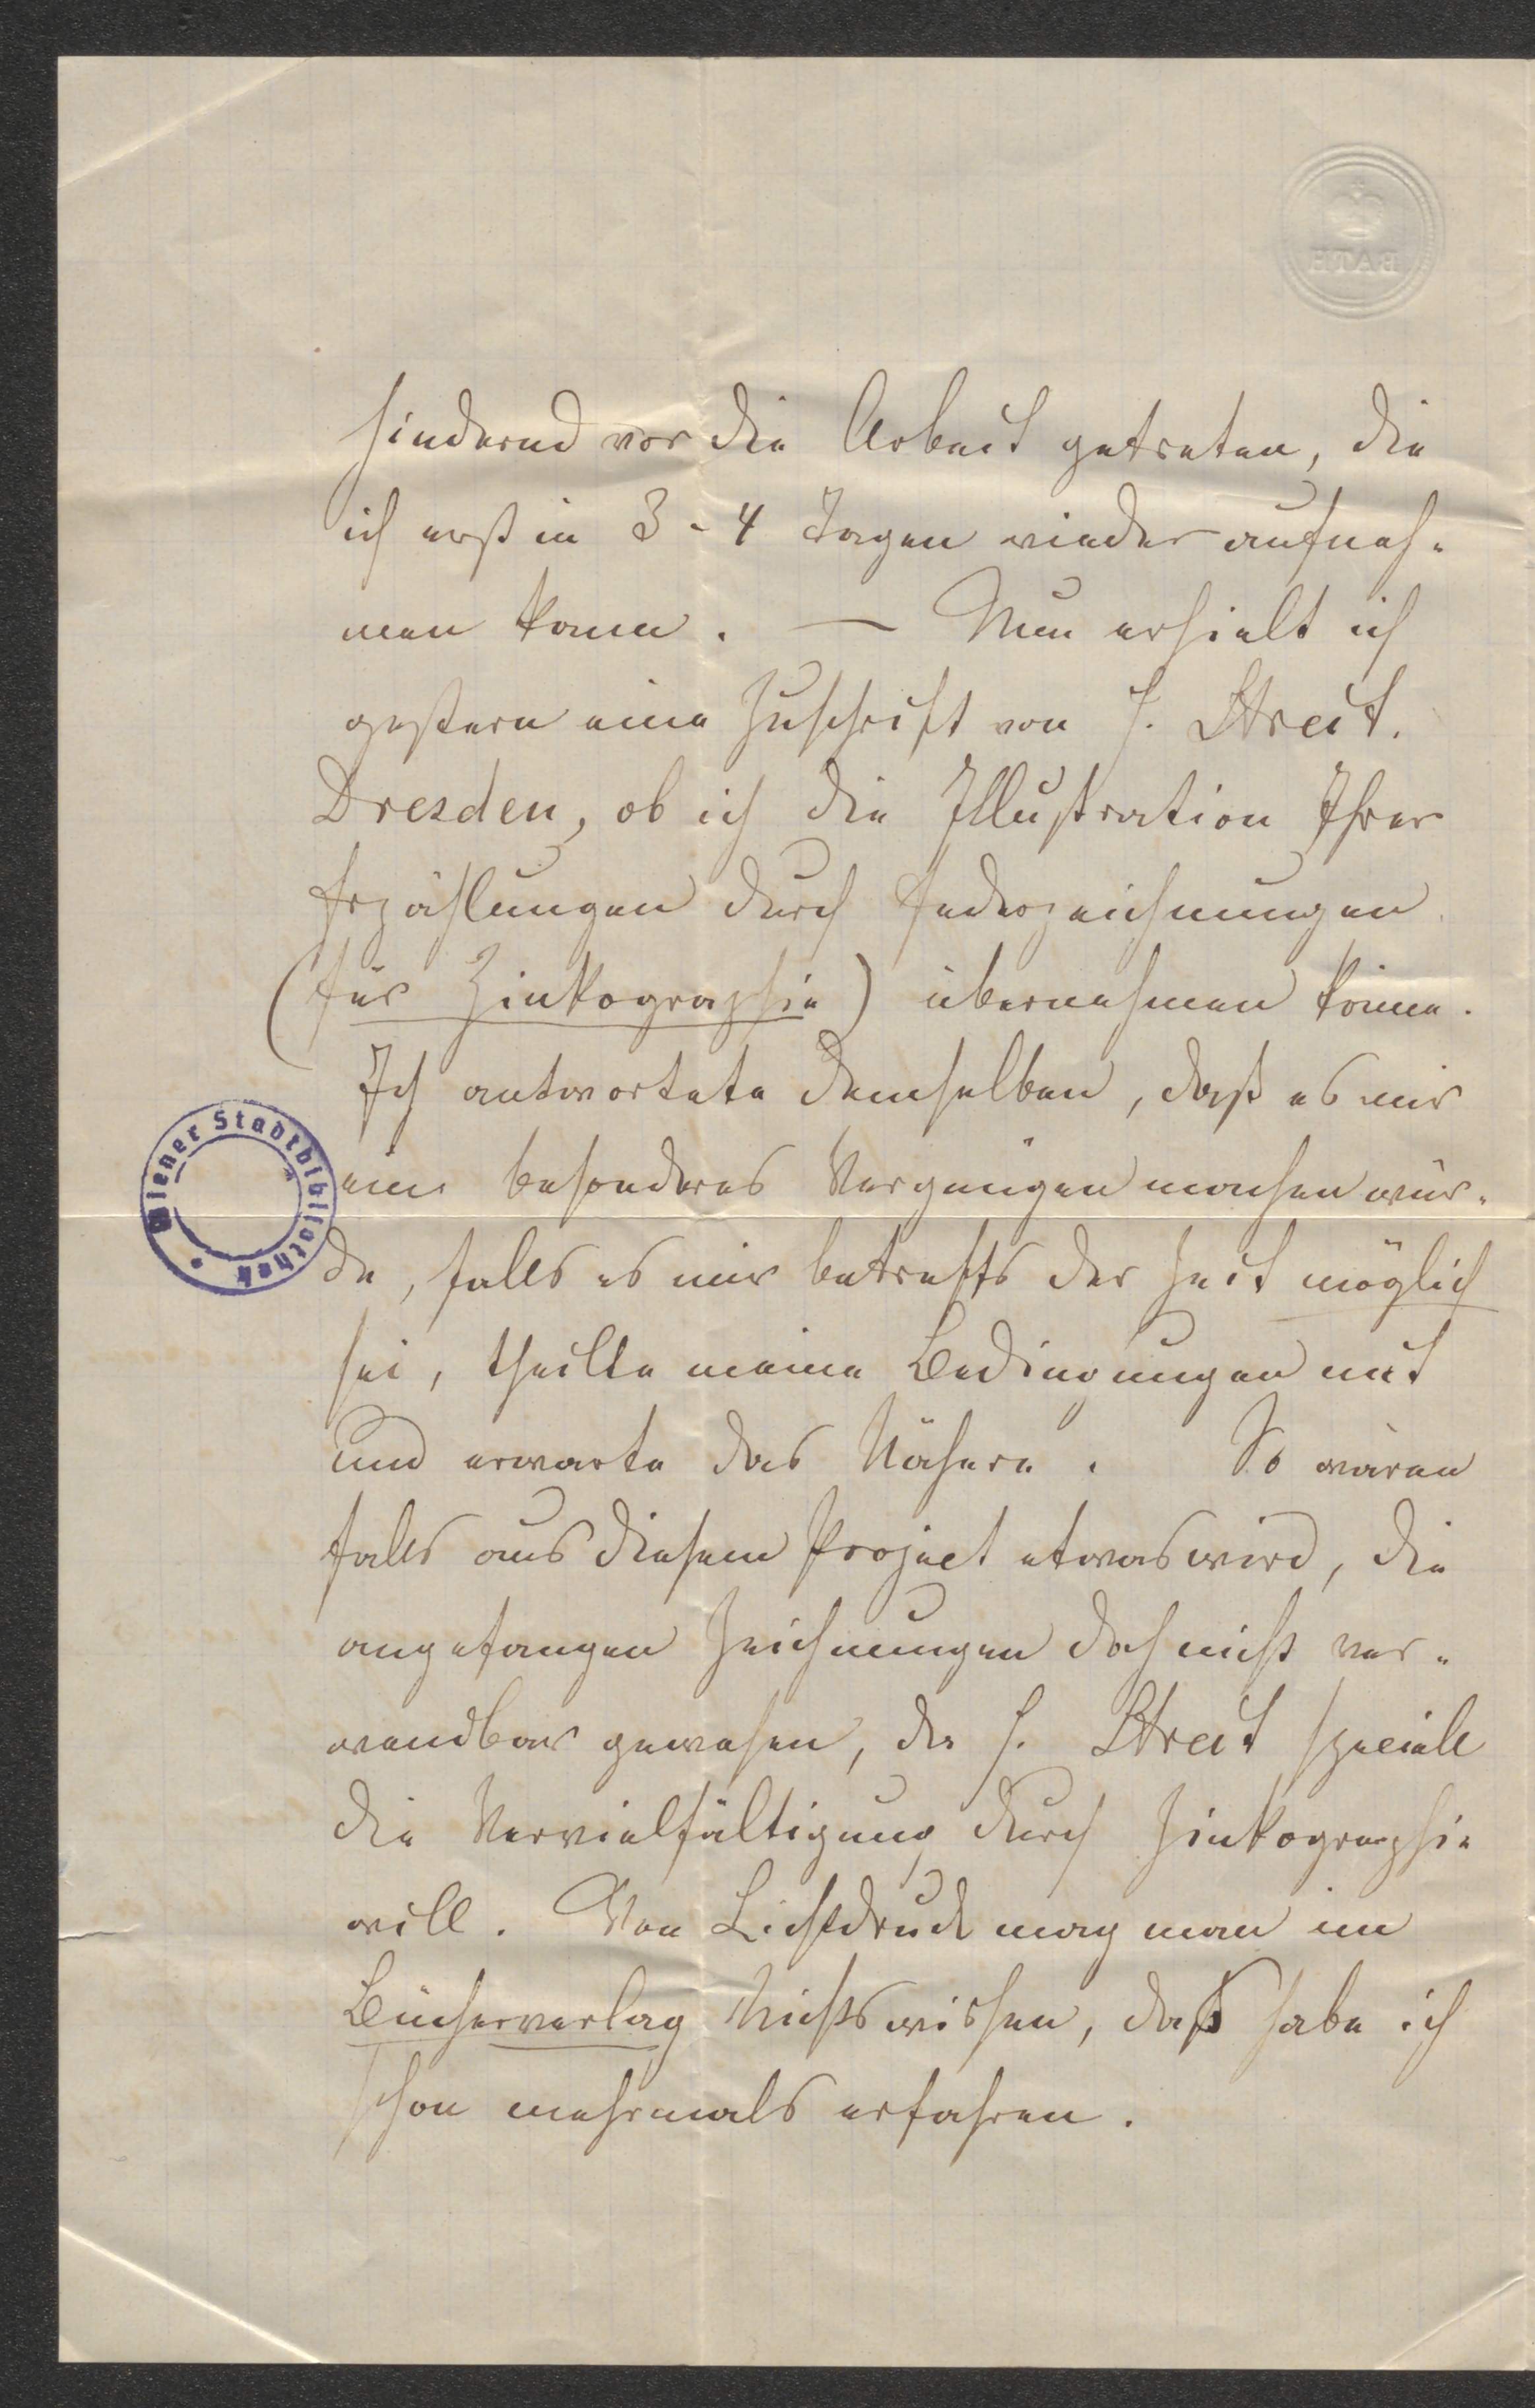 BATH
hindernd vor die Arbeit getreten, die
ich erst in 3-4 Tagen wieder aufneh-
men kann. — Nun erhielt ich
gestern eine Zuschrift von H. Streit.
Dresden, ob ich die Illustration Ihrer
Erzählungen durch Federzeichnungen
(für Zinkographie) übernehmen könne.
Ich antwortete demselben, daß es mir
ein besonderes Vergnügen machen wür-
Wiener Stadtbibliothek
de, falls es mir betreffs der Zeit möglich
sei, theilte meine Bedingungen mit
und erwarte das Nähere. So wären
falls aus diesem Project etwas wird, die
angefangen Zeichnungen doch nicht ver-
wendbar gewesen, da H. Streit speciell
die Vervielfältigung durch Zinkographie
will. Von Lichtdruck mag man im
Bücherverlag Nichts wissen, daß habe ich
schon mehrmals erfahren.